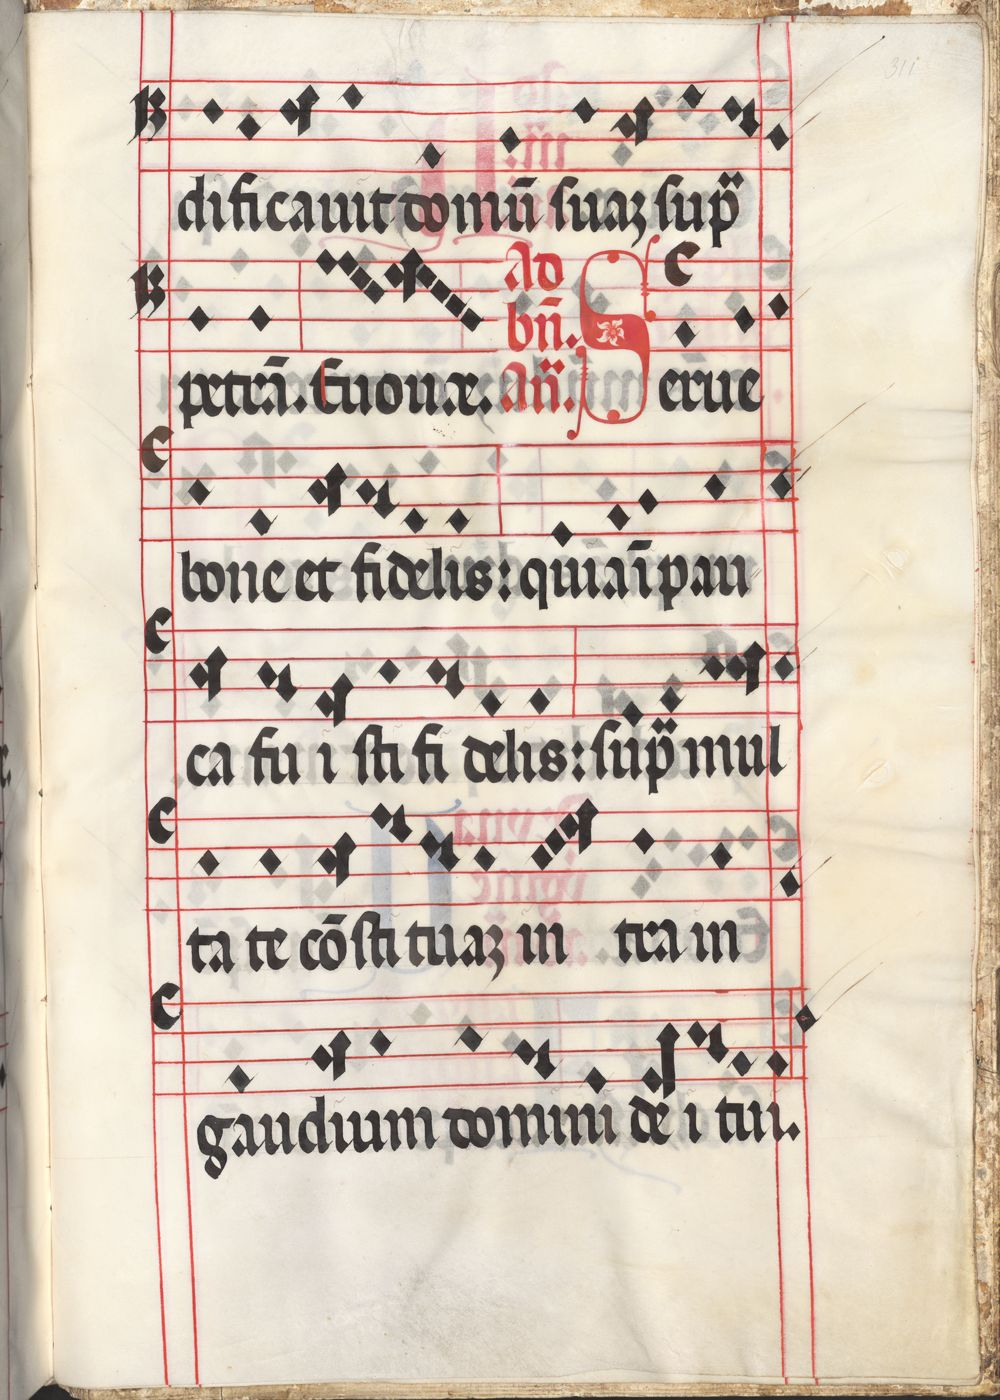 311
dificauit domū suaꝫ sup̄
petrā. Euouæ. Ad bn̄. An̄. Serue
bone et fidelis: quia ī pau
ca fu i sti fi delis: sup̄ mul
ta te cōsti tuaꝫ in tra in
gaudium domini de i tui.